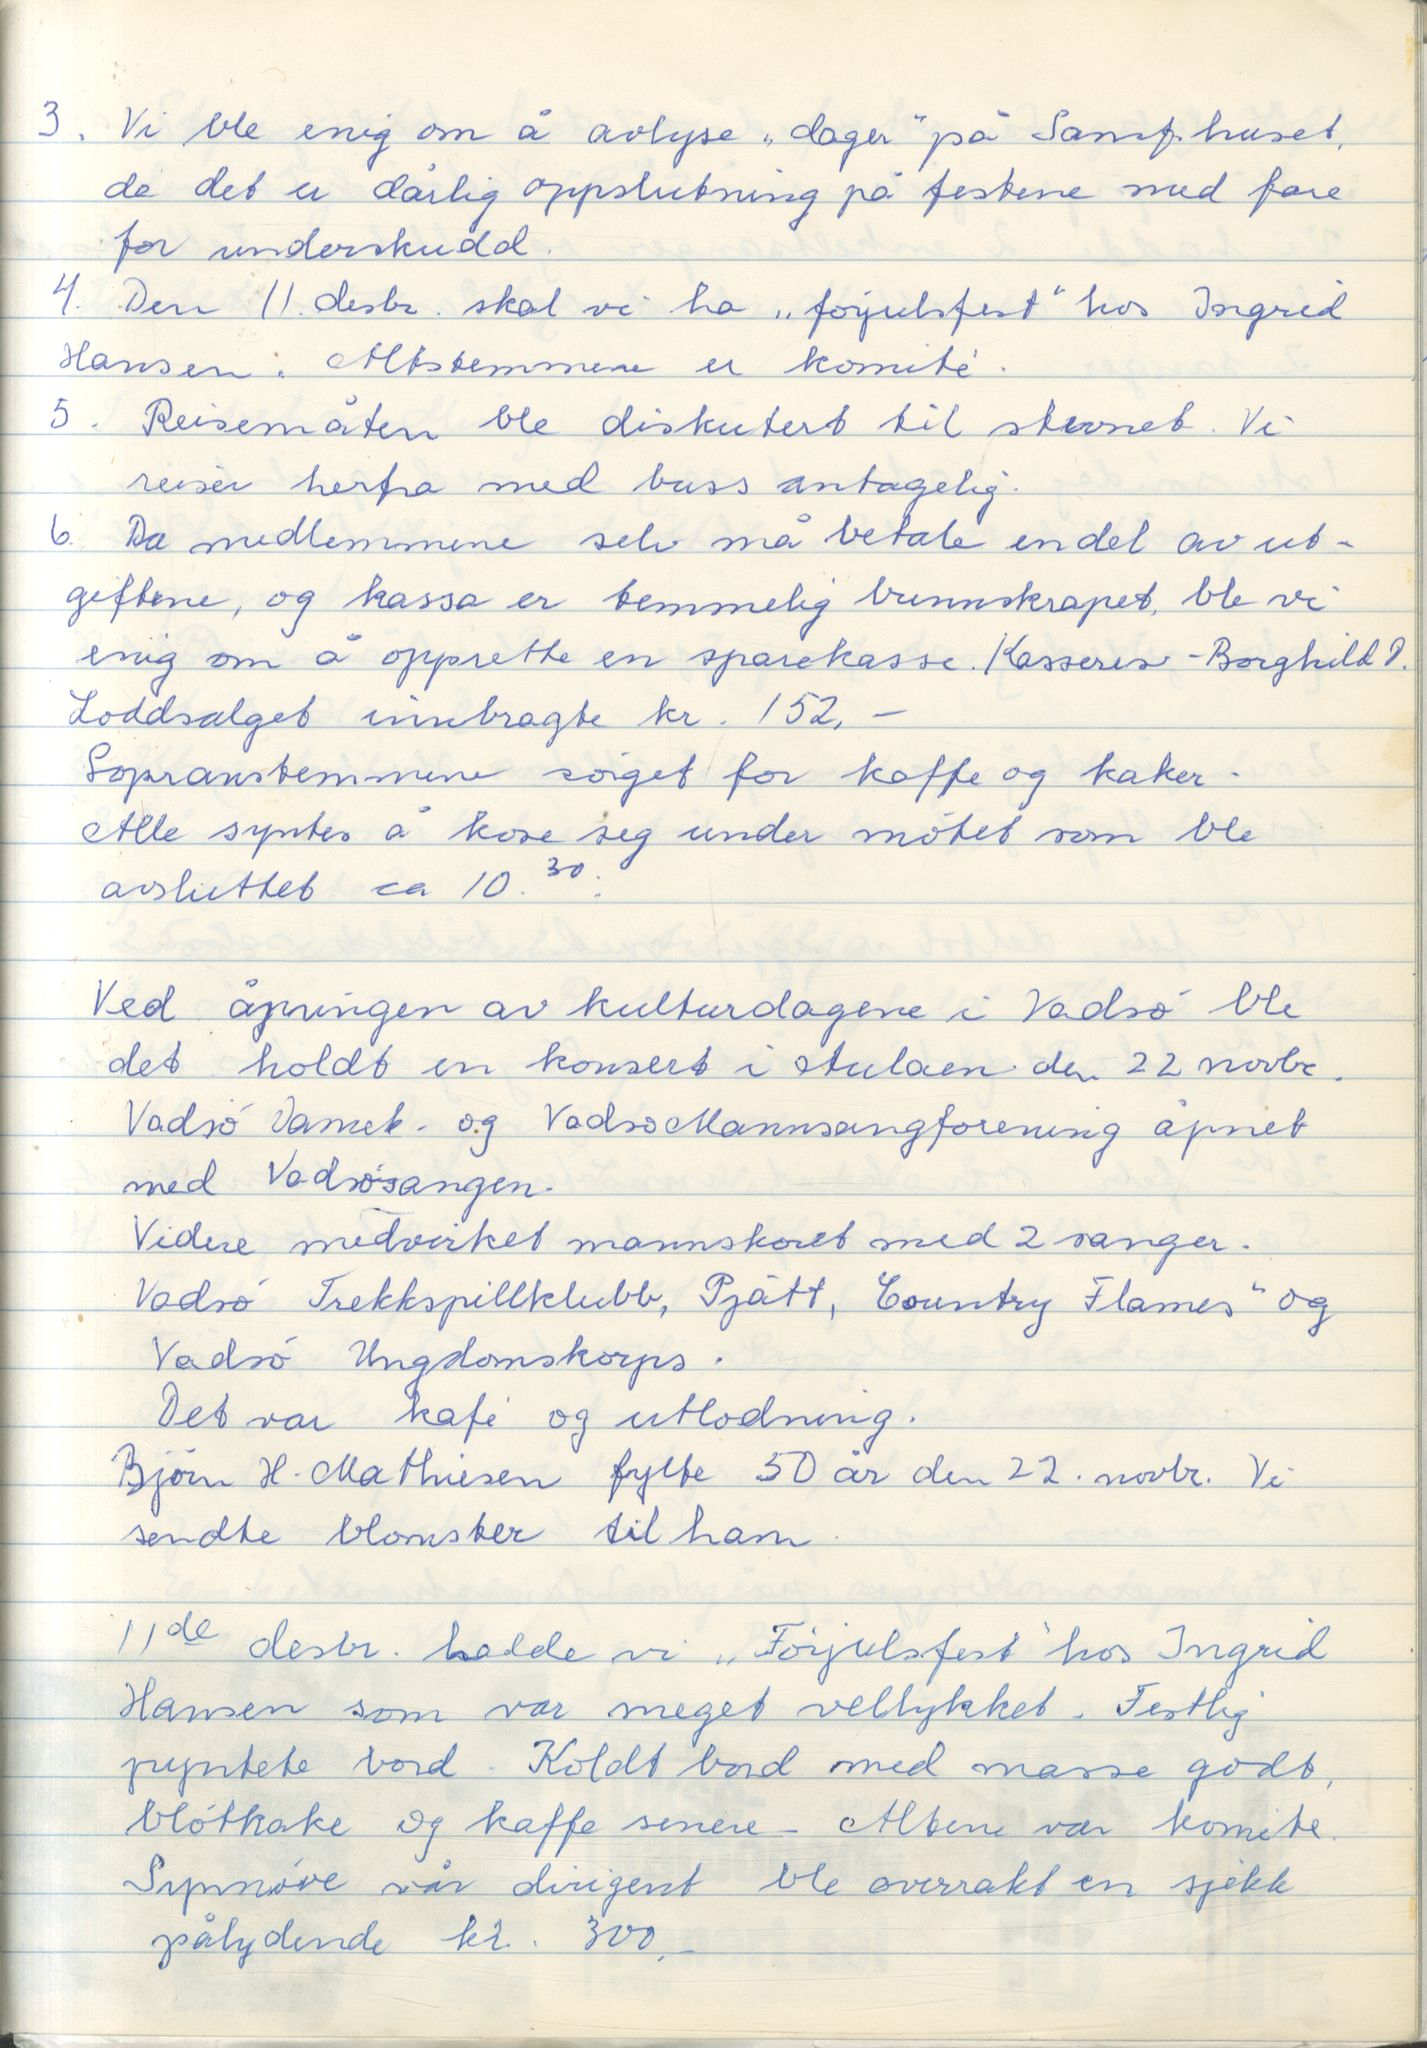 3. Vi ble enig om å avlyse „dager" på Samf.huset,
da det er dårlig oppslutning på festene med fare
for underskudd.
4. Den 11. desbr. skal vi ha „førjulsfest" hos Ingrid
Hansen. Altstemmene er komité.
5. Reisemåten ble diskutert til stevnet. Vi
reiser herfra med buss antagelig.
6. Da medlemmene selv må betale endel av ut-
giftene, og kassa er temmelig bunnskrapet, ble vi
enig om å opprette en sparekasse. Kasserer - Borghild P.
Loddsalget innbragte kr. 152,-
Sopranstemmene sørget for kaffe og kaker.
Alle syntes å kose seg under møtet som ble
avsluttet ca 10.30.
Ved åpningen av kulturdagene i Vadsø ble
det holdt en konsert i Aulaen den 22 novbr.
Vadsø Damek. og Vadsø Mannsangforening åpnet
med Vadsøsangen.
Videre medvirket mannskoret med 2 sanger.
Vadsø Trekkspillklubb, Pjått, Country Flames" og
Vadsø Ungdomskorps.
Det var kafé og utlodning.
Bjørn H. Mathiesen fylte 50 år den 22. novbr. Vi
sendte blomster til ham
11de desbr. hadde vi „Førjulsfest" hos Ingrid
Hansen som var meget vellykket. Festlig
pyntete bord. Koldt bord med masse godt,
bløtkake og kaffe senere - Altene var komite.
Synnøve vår dirigent ble overrakt en sjekk
pålydende kr. 300,-